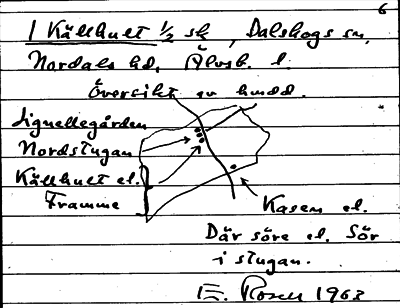 6
1 Källhult 1/2 sk, Dalskogs sn,
Nordals hd, Älvsb. l.
Översikt av
Signellegården
Nordstugan
Källhult el.
Framme
Kasen el.
Där söre el. Sör
i stugan.
E. Rosell 1963